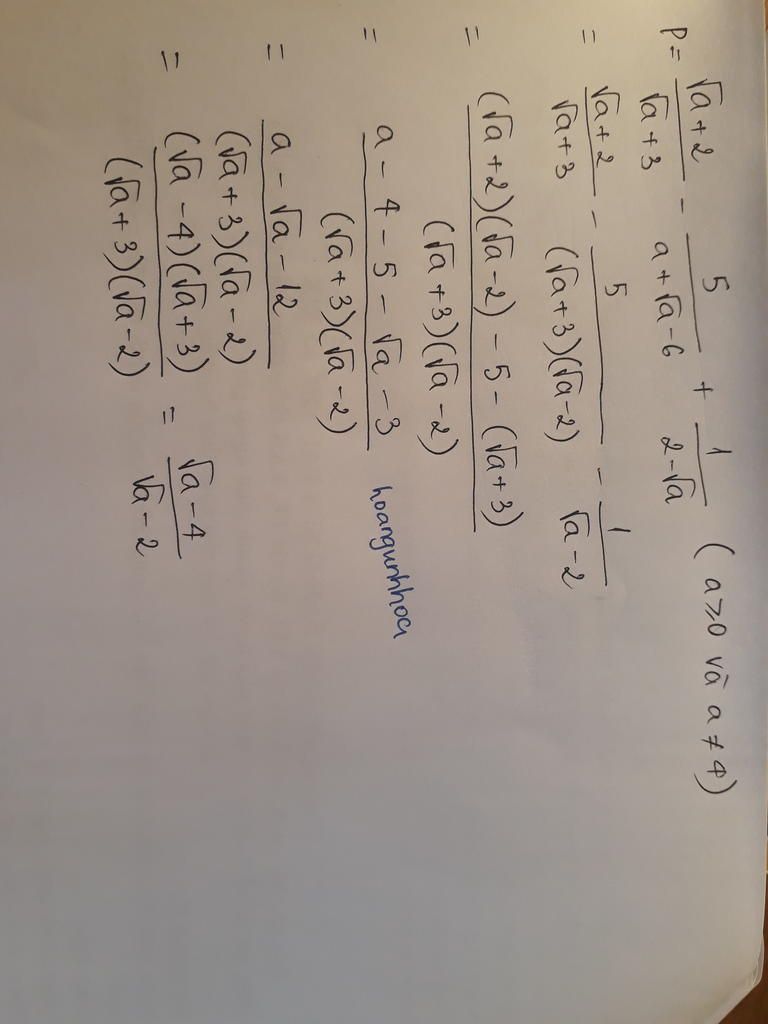 P = \frac{\sqrt{a}+2}{\sqrt{a}+3} - \frac{5}{a+\sqrt{a}-6} + \frac{1}{2-\sqrt{a}} (a ≥ 0 và a ≠ 4)
= \frac{\sqrt{a}+2}{\sqrt{a}+3} - \frac{5}{(\sqrt{a}+3)(\sqrt{a}-2)} - \frac{1}{\sqrt{a}-2}
= \frac{(\sqrt{a}+2)(\sqrt{a}-2) - 5 - (\sqrt{a}+3)}{(\sqrt{a}+3)(\sqrt{a}-2)}
= \frac{a - 4 - 5 - \sqrt{a} - 3}{(\sqrt{a}+3)(\sqrt{a}-2)} hoangunhhoa
= \frac{a - \sqrt{a} - 12}{(\sqrt{a}+3)(\sqrt{a}-2)}
= \frac{(\sqrt{a}-4)(\sqrt{a}+3)}{(\sqrt{a}+3)(\sqrt{a}-2)} = \frac{\sqrt{a}-4}{\sqrt{a}-2}